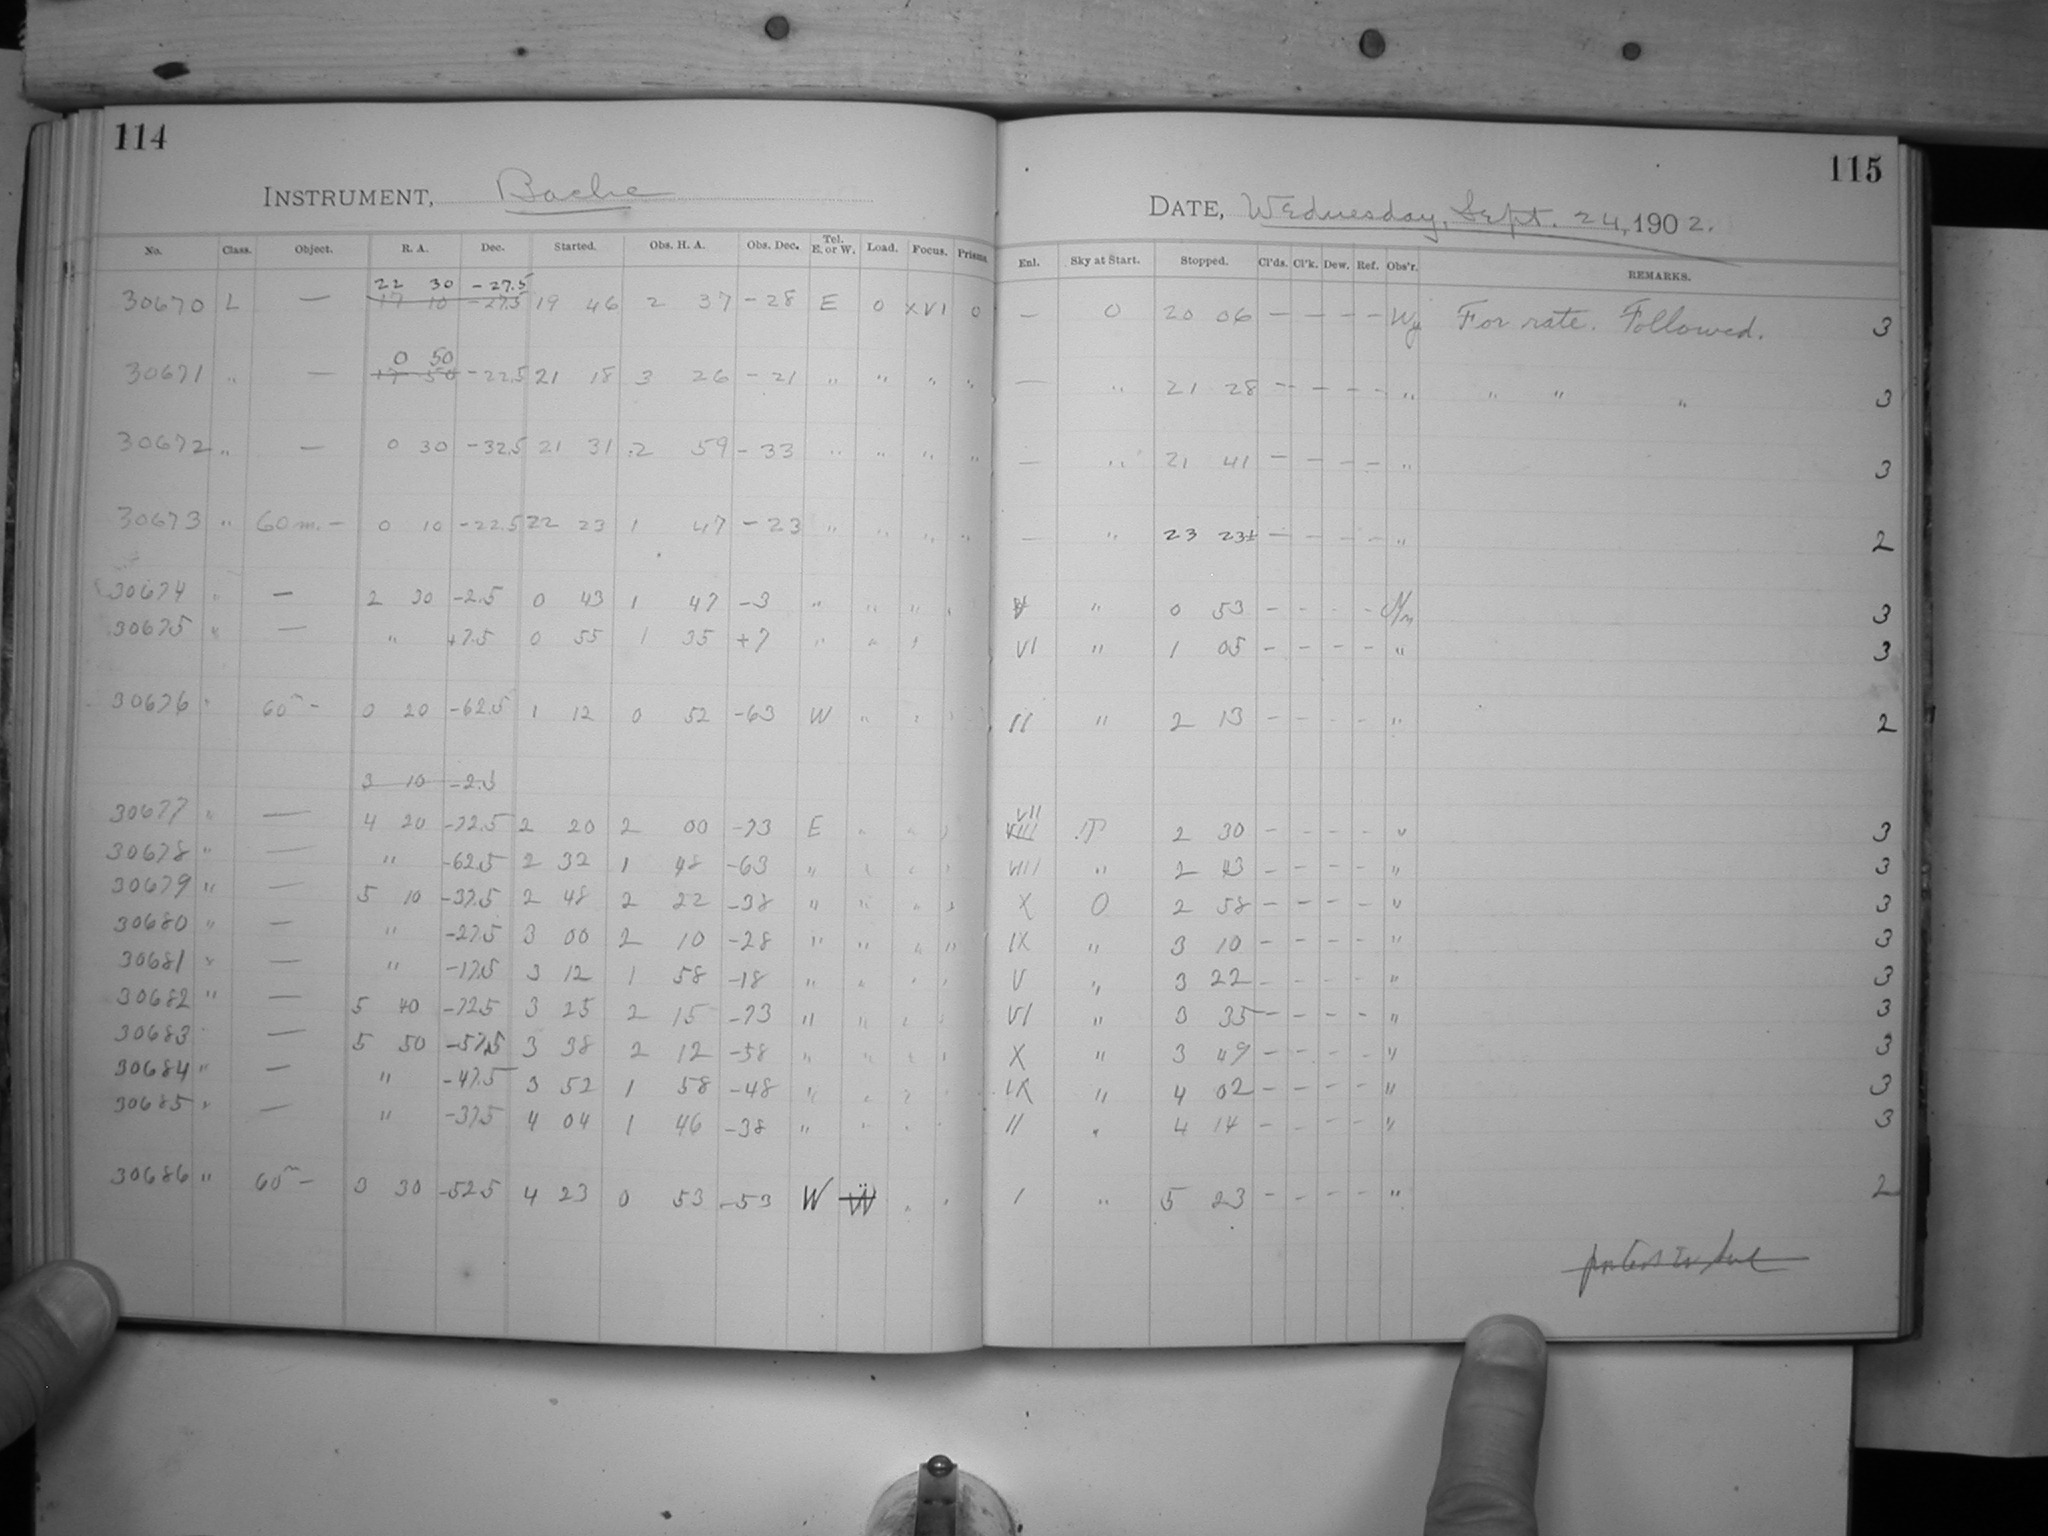 114
INSTRUMENT, Bache
No. Class. Object. R. A. Dec. Started. Obs. H. A. Obs. Dec. Tel. E. or W. Load. Focus. Prisms.
22 30 -27.5
30670 L — 17 10 -27.5 19 46 2 37 -28 E 0 XVI 0
0 50
30671 " — 17 50 -22.5 21 18 3 26 -21 " " " "
30672 " — 0 30 -32.5 21 31 2 59 -33 " " " "
30673 " 60m. — 0 10 -22.5 22 23 1 47 -23 " " " "
30674 " — 2 30 -2.5 0 43 1 47 -3 " " " "
30675 " — " +7.5 0 55 1 35 +7 " " "
30676 " 60m — 0 20 -62.5 1 12 0 52 -63 W " " "
3 10 -2.5
30677 " — 4 20 -72.5 2 20 2 00 -73 E " " "
30678 " — " -62.5 2 32 1 48 -63 " " " "
30679 " — 5 10 -37.5 2 48 2 22 -38 " " " "
30680 " — " -27.5 3 00 2 10 -28 " " " "
30681 " — " -17.5 3 12 1 58 -18 " " " "
30682 " — 5 40 -72.5 3 25 2 15 -73 " " " "
30683 " — 5 50 -57.5 3 38 2 12 -58 " " " "
30684 " — " -47.5 3 52 1 58 -48 " " " "
30685 " — " -37.5 4 04 1 46 -38 " " " "
30686 " 60m — 3 30 -52.5 4 23 0 53 -53 W W " "
115
DATE, Wednesday, Sept. 24, 1902.
Enl. Sky at Start. Stopped. Cl'ds. Cl'k. Dew. Ref. Obs'r. REMARKS.
— 0 20 06 — — — — For rate. Followed. 3
— " 21 28 — — — — " " " " 3
— " 21 41 — — — — " 3
— " 23 23± — — — — " 2
V " 0 53 - - - - 3
VI " 1 05 - - - - " 3
II " 2 13 - - - - " 2
VII
VIII 2 30 - - - - " 3
VIII " 2 43 - - - - " 3
X 0 2 58 - - - - " 3
IX " 3 10 - - - - " 3
V " 3 22 - - - - " 3
VI " 3 35 - - - - " 3
X " 3 49 - - - - " 3
IX " 4 02 - - - - " 3
II " 4 14 - - - - " 3
I " 5 23 - - - - " 2